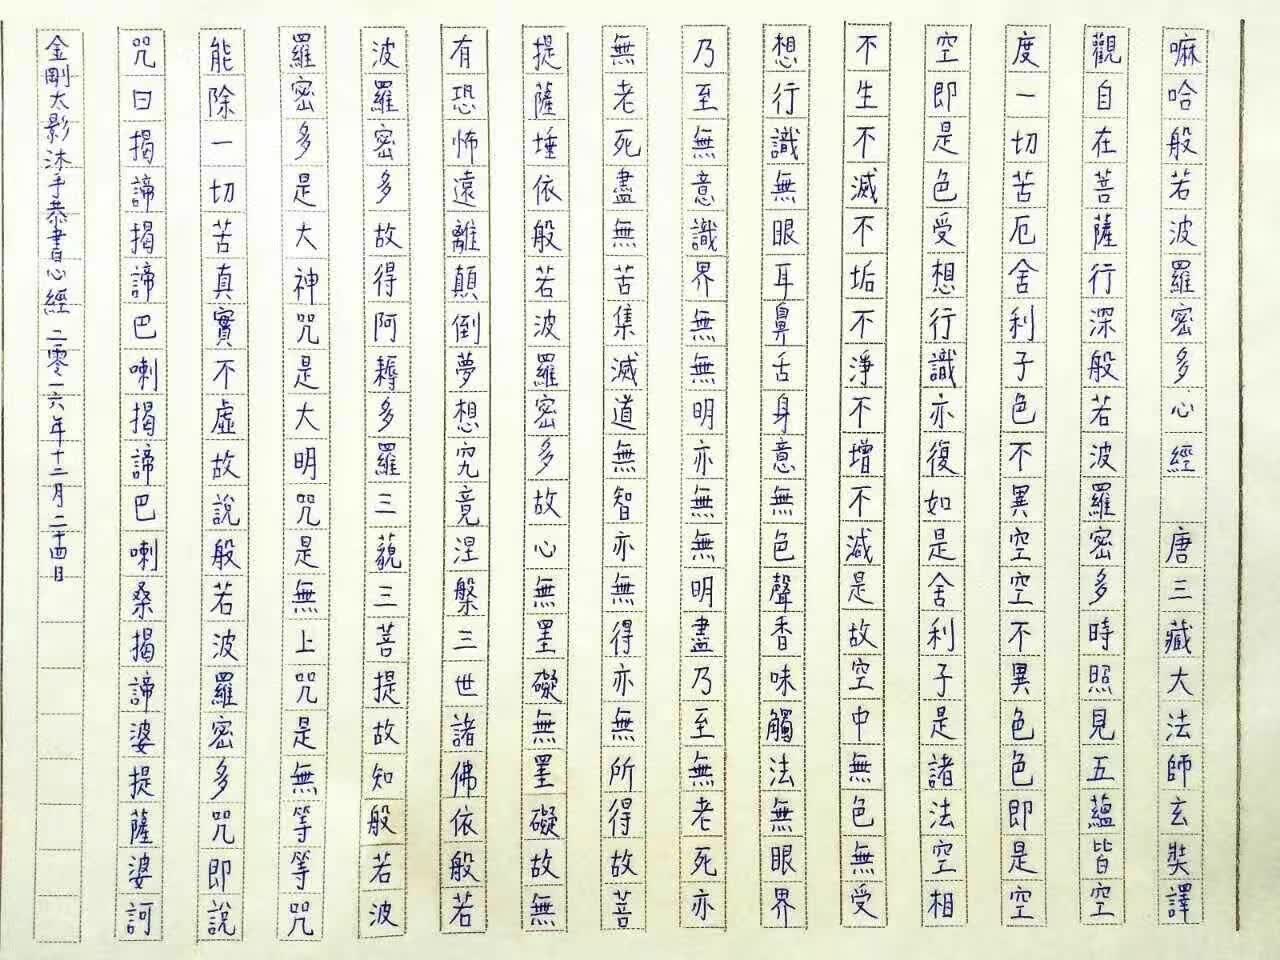 嘛哈般若波羅密多心經 唐三藏大法師玄奘譯
觀自在菩薩行深般若波羅密多時照見五蘊皆空
度一切苦厄舍利子色不異空空不異色色即是空
空即是色受想行識亦復如是舍利子是諸法空相
不生不滅不垢不淨不增不減是故空中無色無受
想行識無眼耳鼻舌身意無色聲香味觸法無眼界
乃至無意識界無無明亦無無明盡乃至無老死亦
無老死盡無苦集滅道無智亦無得亦無所得故菩
提薩埵依般若波羅密多故心無罣礙無罣礙故無
有恐怖遠離顛倒夢想究竟涅槃三世諸佛依般若
波羅密多故得阿耨多羅三藐三菩提故知般若波
羅密多是大神咒是大明咒是無上咒是無等等咒
能除一切苦真實不虛故說般若波羅密多咒即說
咒曰揭諦揭諦巴喇揭諦巴喇桑揭諦婆提薩婆訶
金剛太影沐手恭書心經 二零一六年十二月二十四日